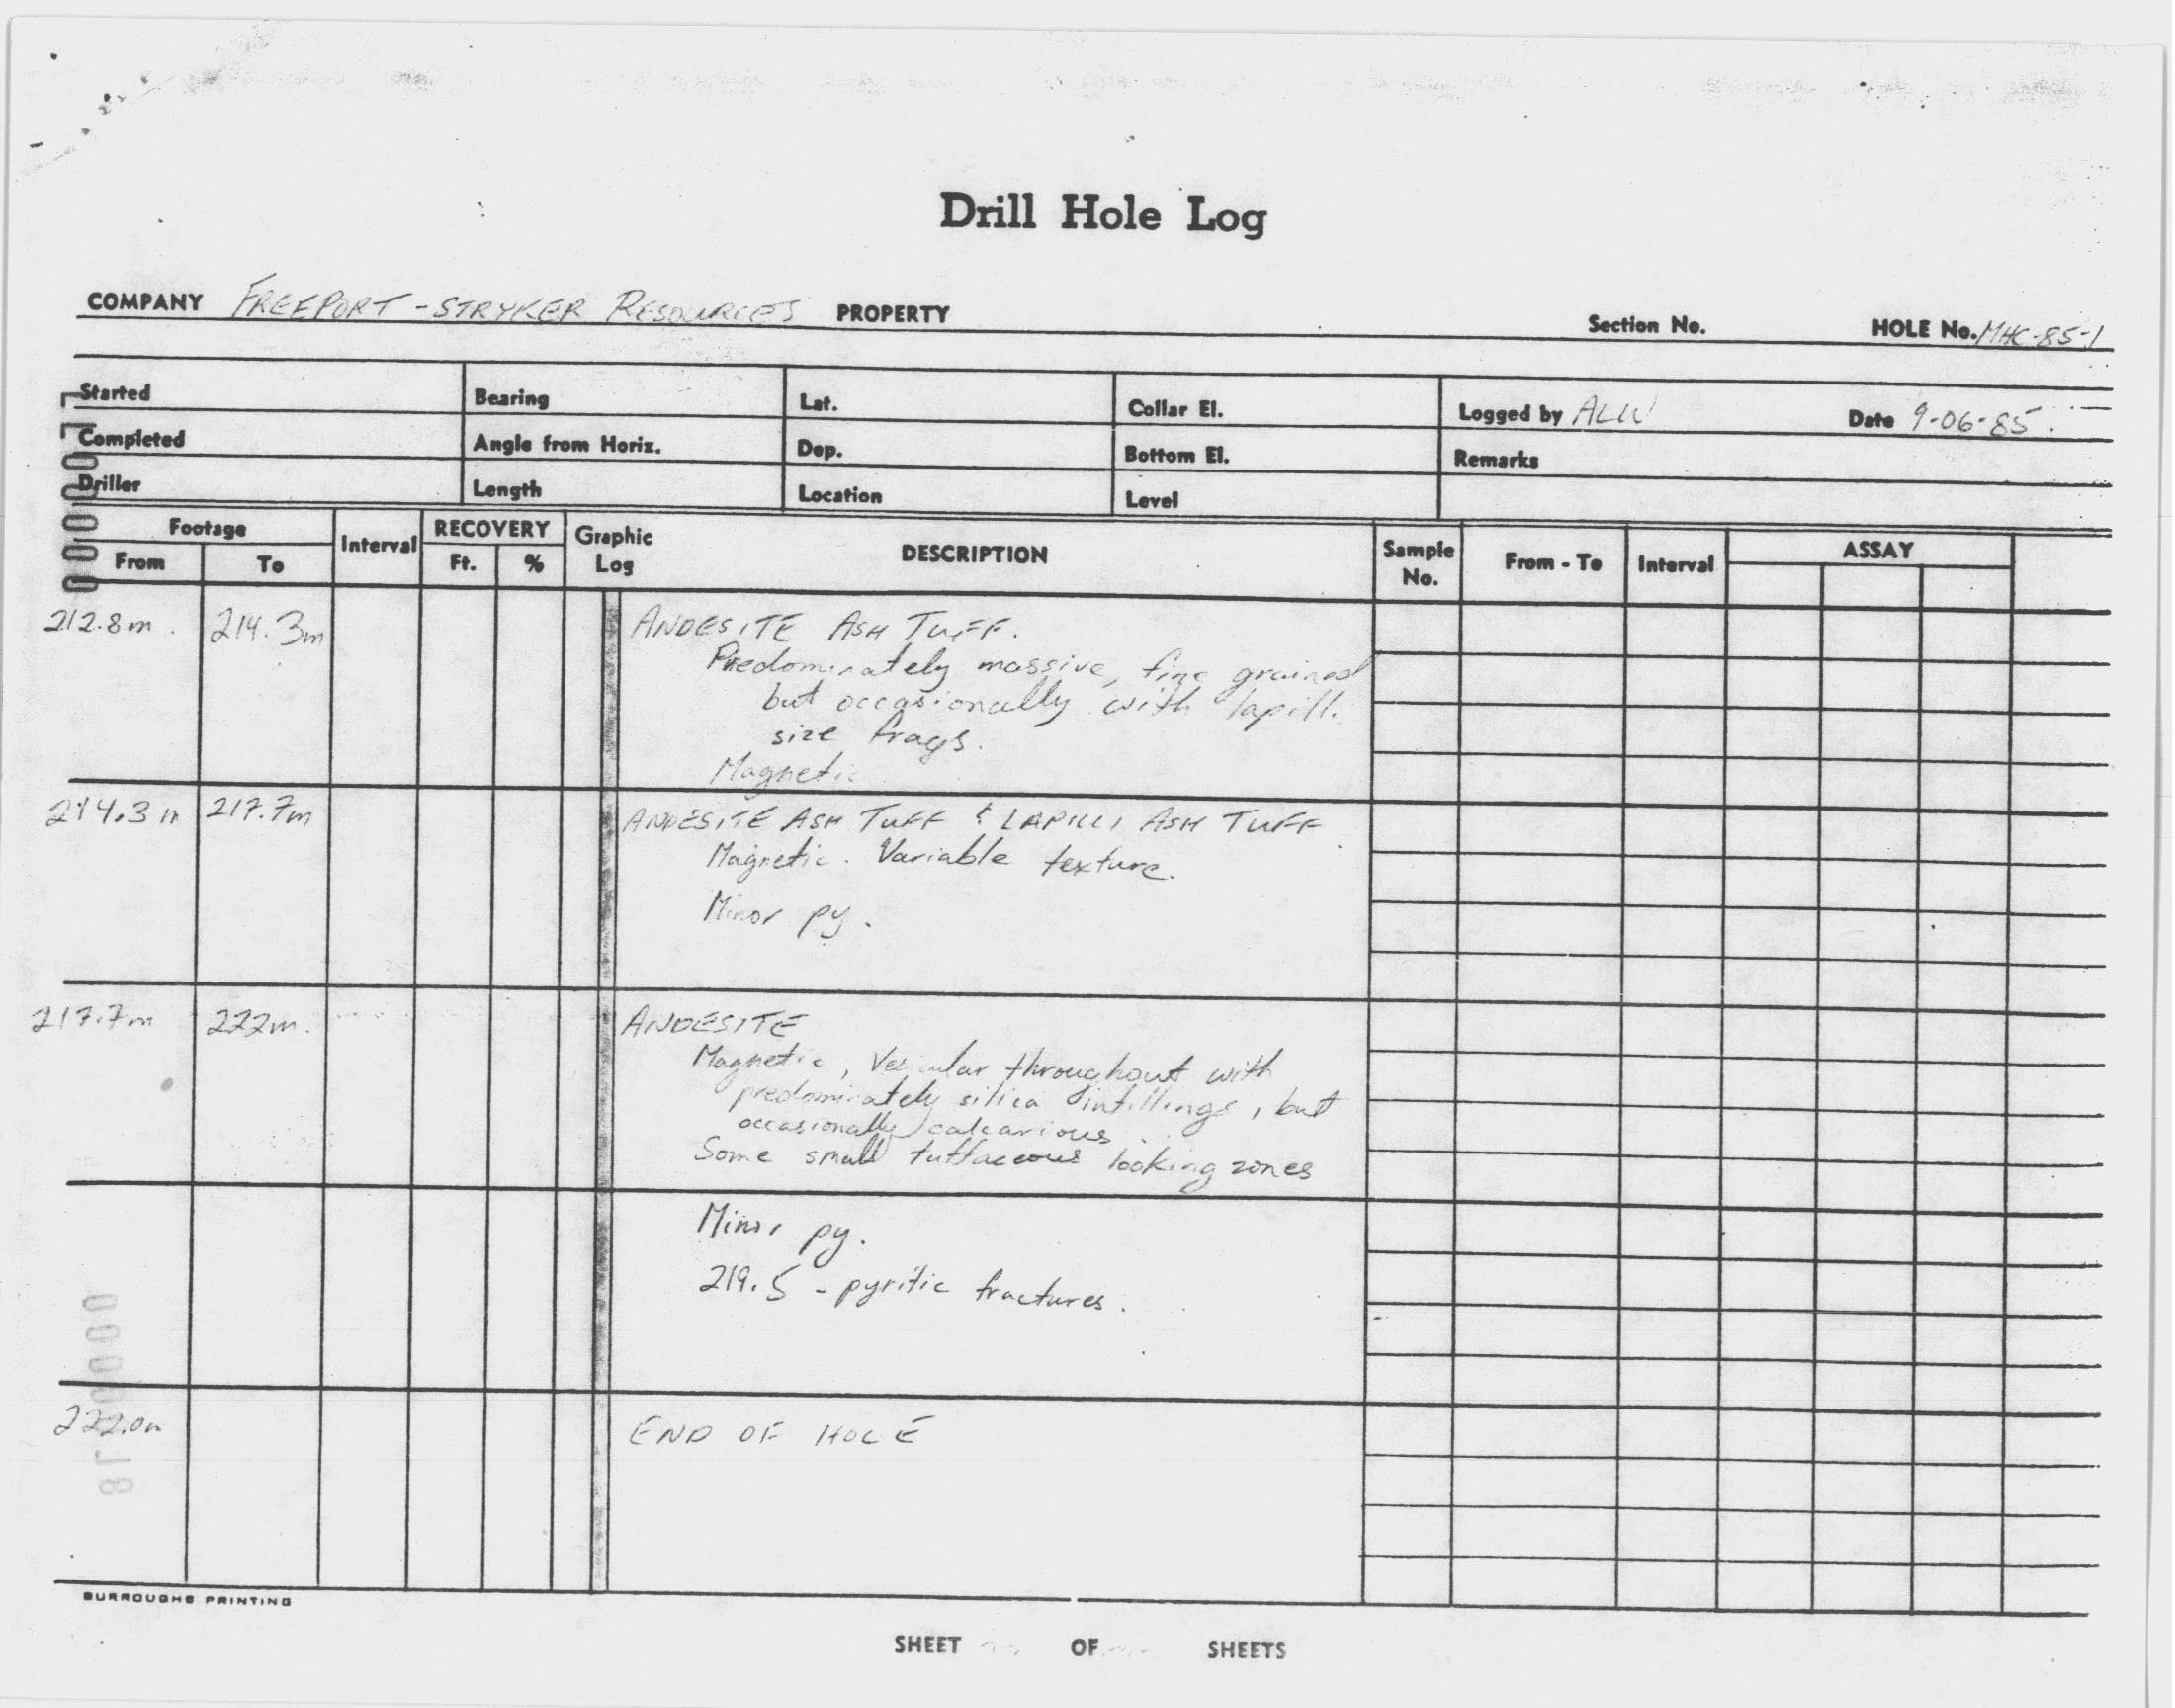 Drill Hole Log
COMPANY FREEPORT - STRYKER RESOURCES PROPERTY Section No. HOLE No. MHC-85-1
Started Bearing Lat. Collar El. Logged by ALW Date 9-06-85
Completed Angle from Horiz. Dep. Bottom El. Remarks
Driller Length Location Level
Footage Interval RECOVERY Graphic Log DESCRIPTION Sample No. From - To Interval ASSAY
From To Ft. %
212.8m 214.3m ANDESITE ASH TUFF.
Predominately massive, fine grained
but occasionally with lapilli
size frags.
Magnetic
214.3m 217.7m ANDESITE ASH TUFF & LAPILLI ASH TUFF
Magnetic. Variable texture.
Minor py.
217.7m 222m. ANDESITE
Magnetic, Vesicular throughout with
predominately silica infillings, but
occasionally calcarious.
Some small tuffaceous looking zones
Minor py.
219.5 - pyritic fractures.
222.0m END OF HOLE
BURROUGHS PRINTING
SHEET OF SHEETS